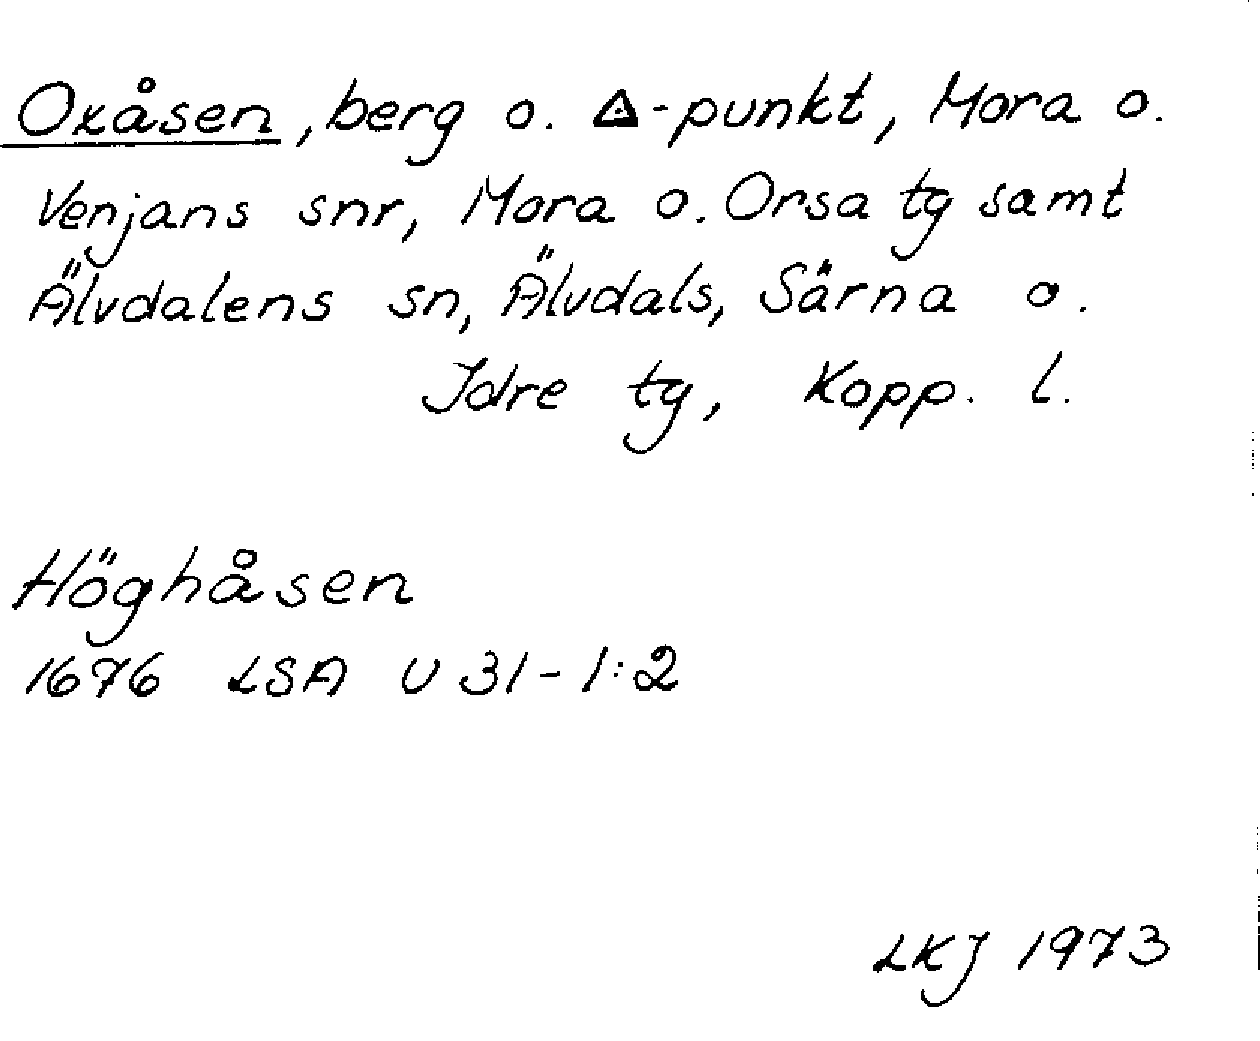 Oxåsen, berg o. △-punkt, Mora o.
Venjans snr, Mora o. Orsa tg samt
Älvdalens sn, Älvdals, Särna o.
Idre tg, Kopp. l.
Höghåsen
1676 LSA U 31-1:2
LKJ 1973